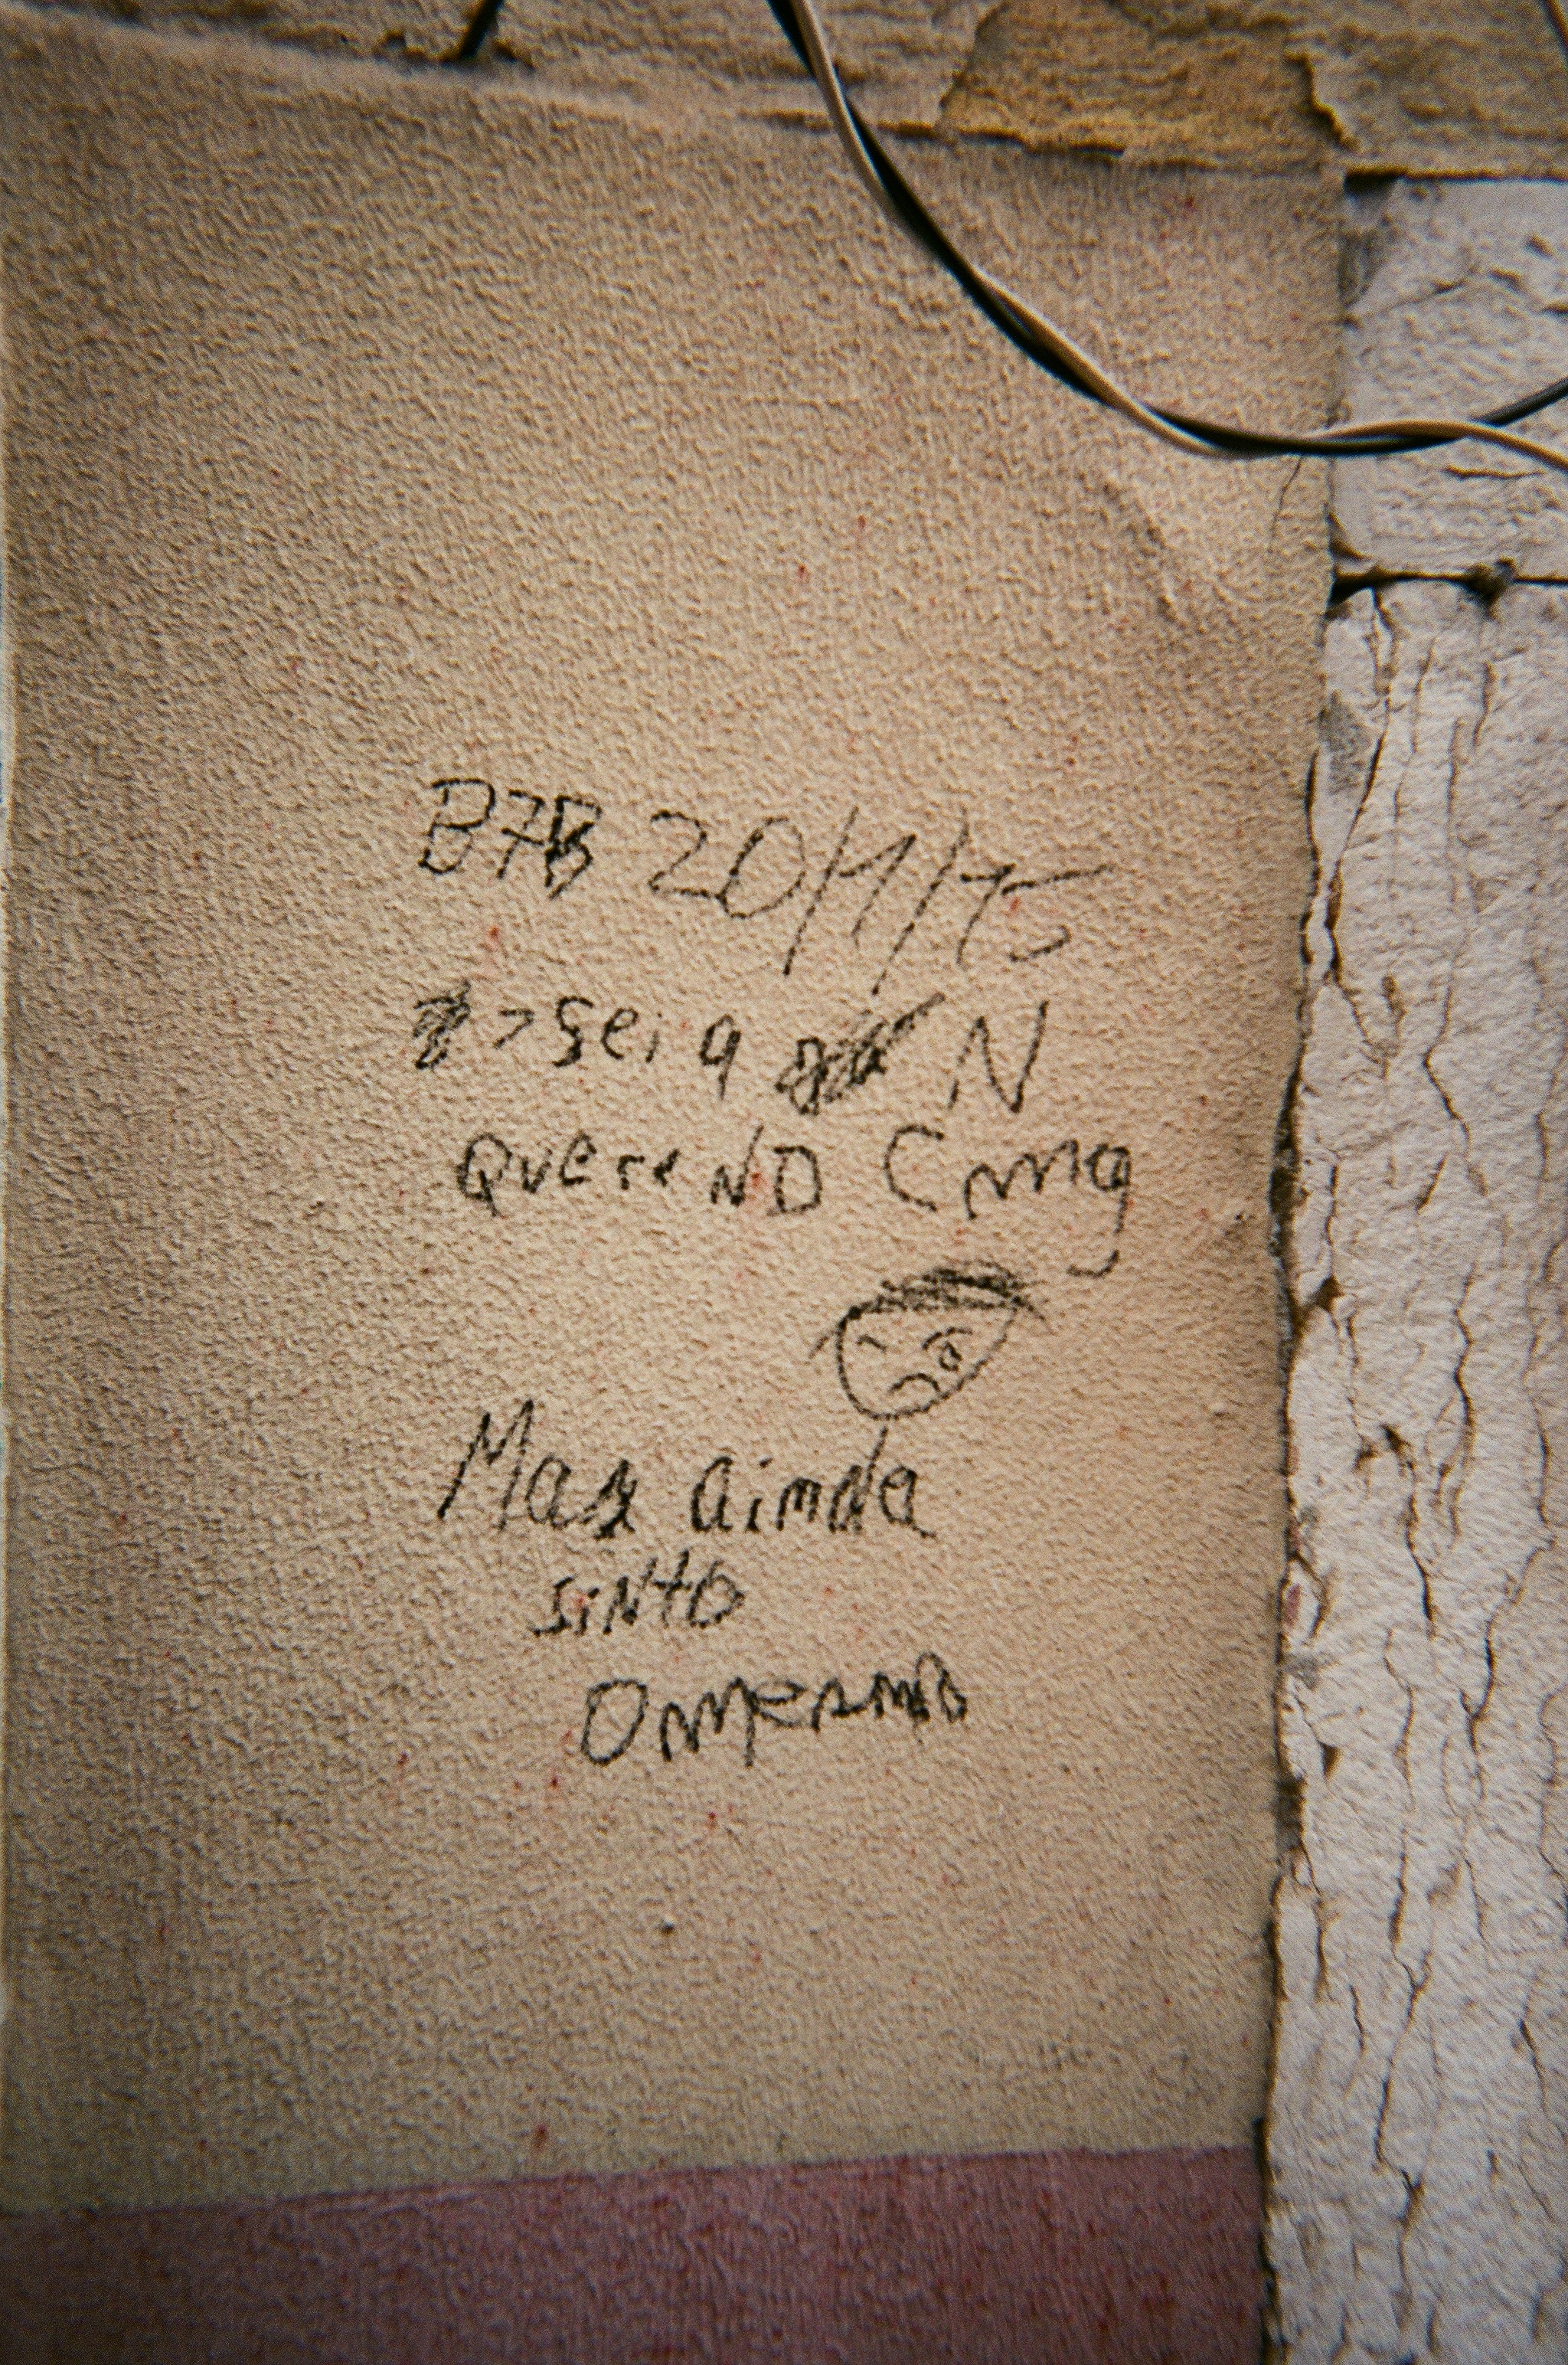 B7B 20/1/15
> sei q N
QuereNDO Cmg
Mas ainda
sinto
O mesmo